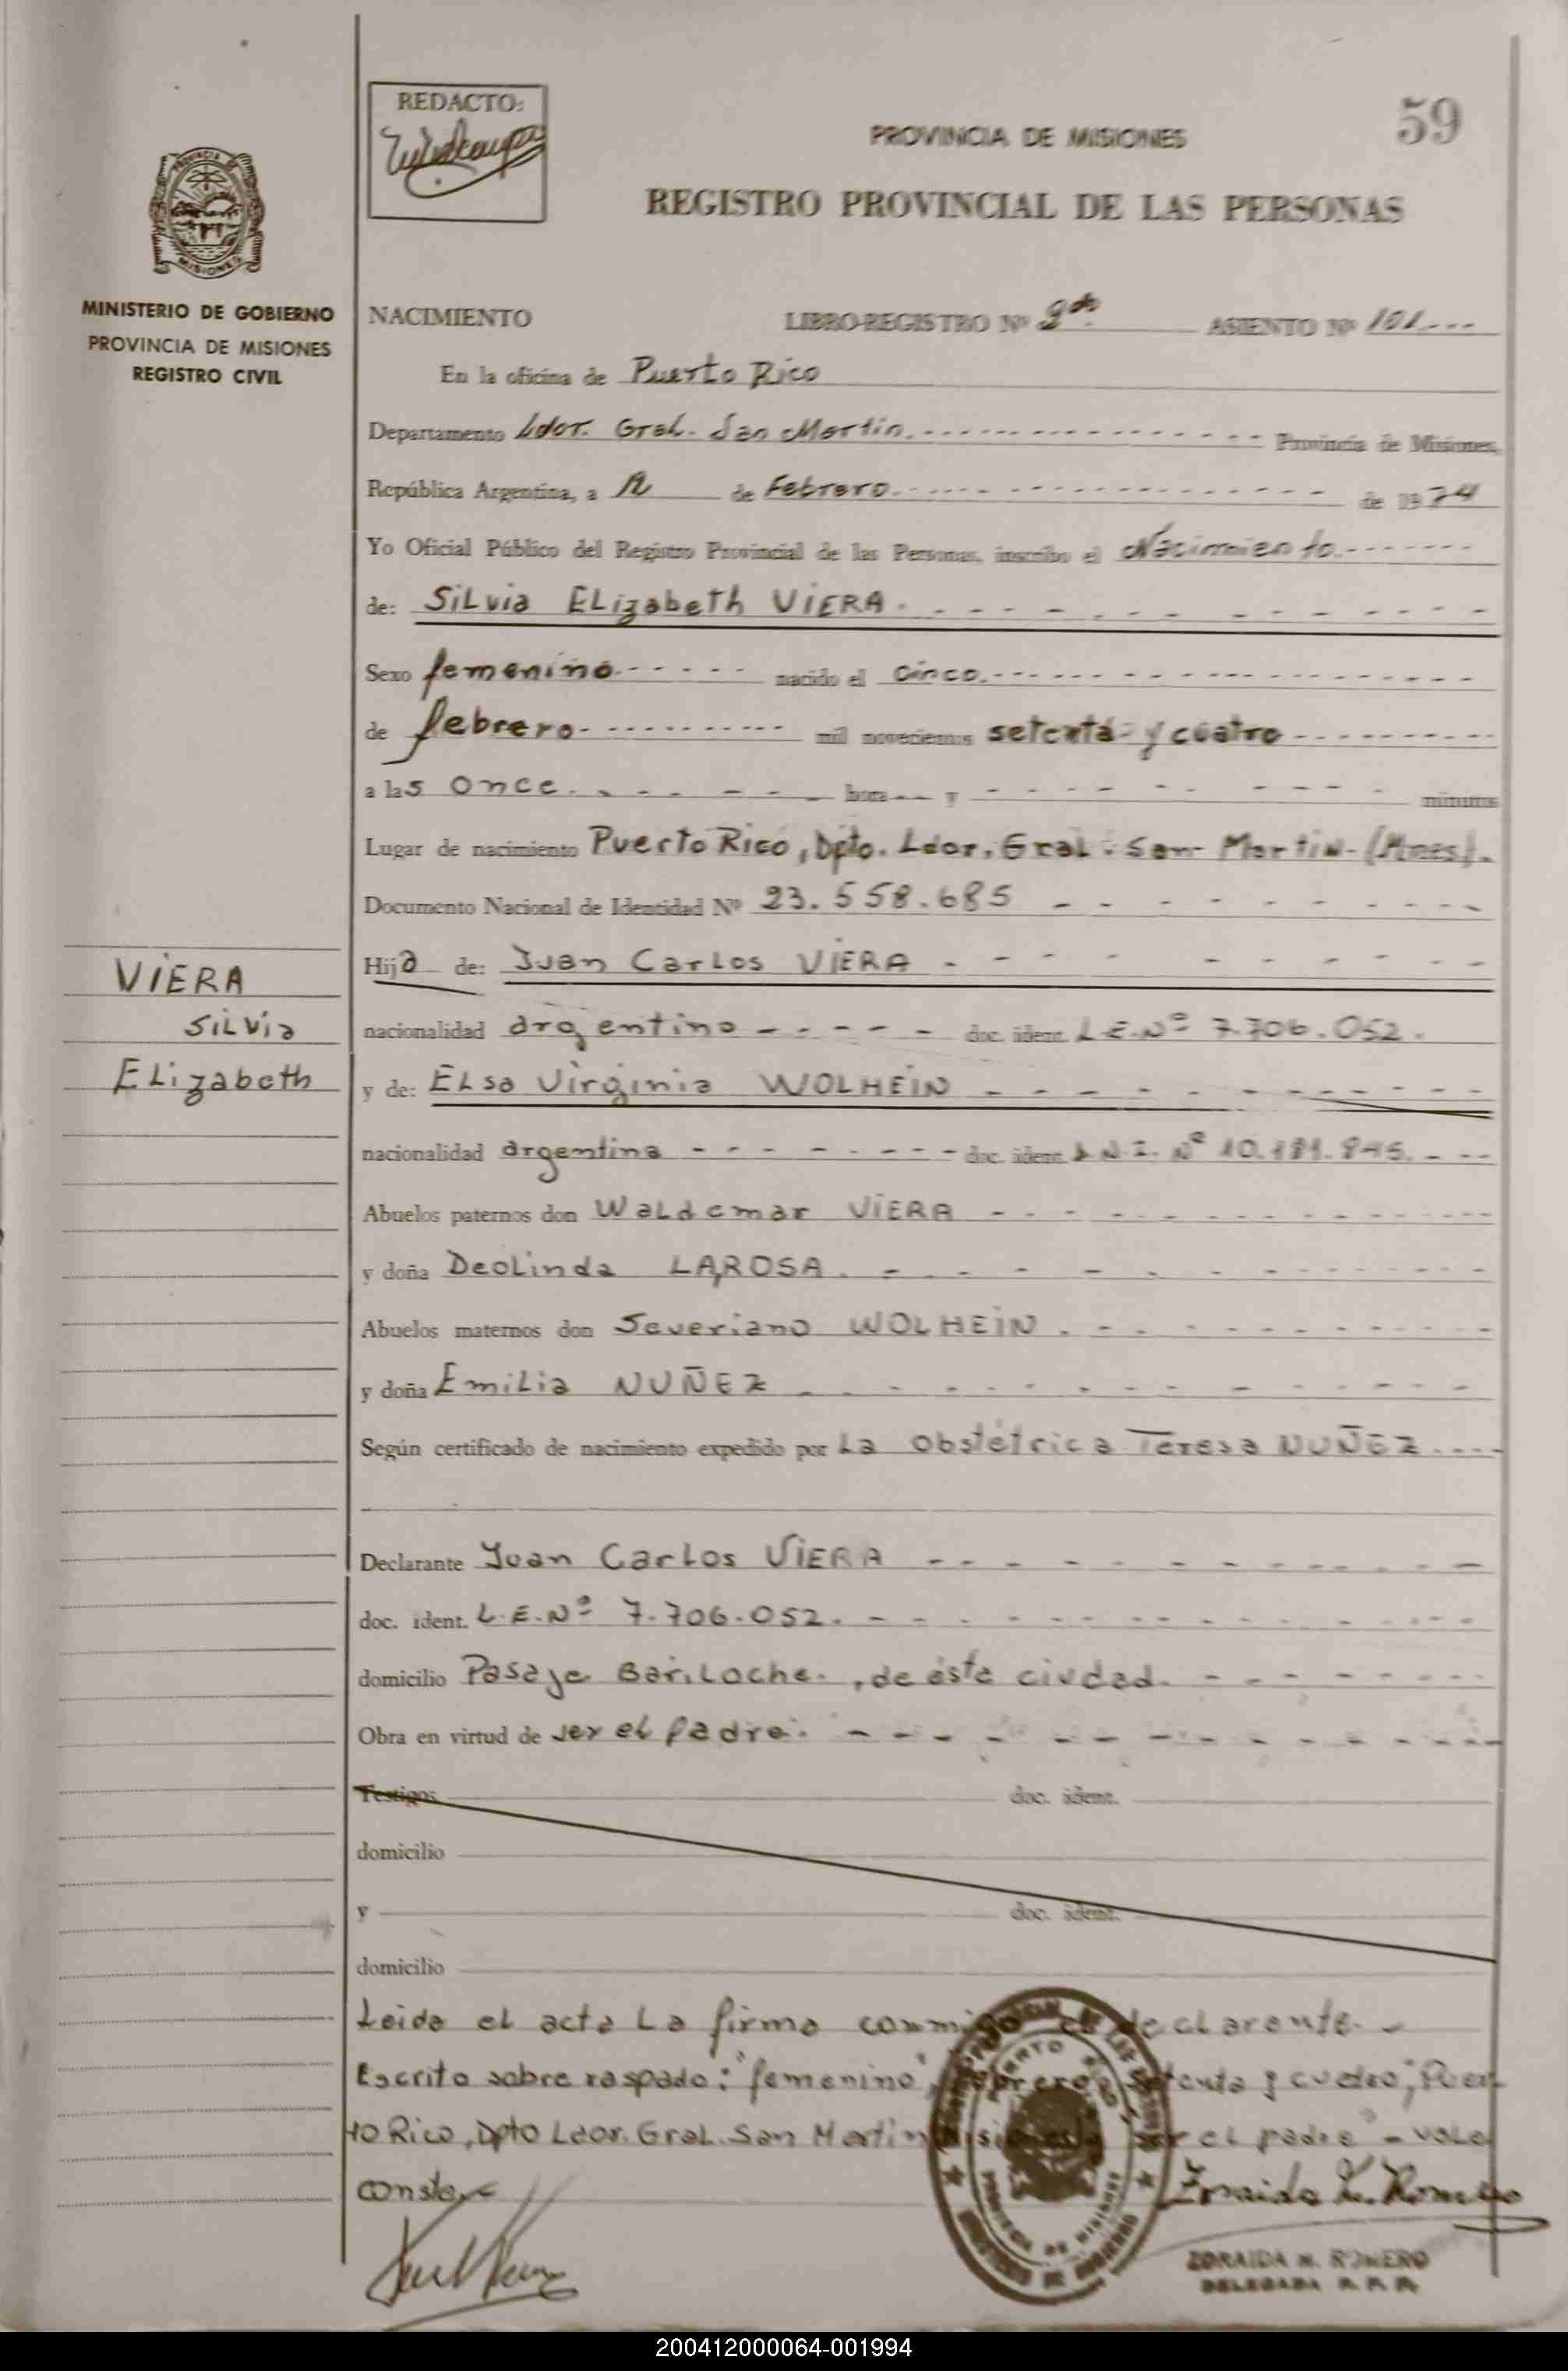 REDACTO:
59
PROVINCIA DE MISIONES
REGISTRO PROVINCIAL DE LAS PERSONAS
PROVINCIA DE
MISIONES
MINISTERIO DE GOBIERNO
PROVINCIA DE MISIONES
REGISTRO CIVIL
NACIMIENTO LIBRO-REGISTRO Nº 2do. ASIENTO Nº 101---
En la oficina de Puerto Rico
Departamento Ldor. Gral. San Martin. Provincia de Misiones,
República Argentina, a 12 de Febrero. de 1974
Yo Oficial Público del Registro Provincial de las Personas, inscribo el Nacimiento.
de: Silvia Elizabeth VIERA.
Sexo femenino nacido el cinco.
de febrero mil novecientos setenta y cuatro
a las once. hora y minutos
Lugar de nacimiento Puerto Rico, Dpto. Ldor. Gral. San Martin-(Mnes).
Documento Nacional de Identidad Nº 23.558.685
Hija de: Juan Carlos VIERA
nacionalidad argentino doc. ident. L.E.Nº 7.706.052.
y de: Elsa Virginia WOLHEIN
nacionalidad argentina doc. ident. Nº
Abuelos paternos don Waldemar VIERA
y doña Deolinda LAROSA.
Abuelos maternos don Severiano WOLHEIN.
y doña Emilia NUÑEZ
Según certificado de nacimiento expedido por La Obstétrica Teresa NUÑEZ
Declarante Juan Carlos VIERA
doc. ident. L.E.Nº 7.706.052.
domicilio Pasaje Bariloche., de ésta ciudad.
Obra en virtud de ser el padre.
Testigos doc. ident.
domicilio
y doc. ident.
domicilio
Leida el acta La firma conmigo el declarante.
Escrito sobre raspado: "femenino", febrero, setenta y cuatro, Puer
to Rico, Dpto Ldor. Gral. San Martin Misiones ser el padre" - vale
conste
Zoraida N. Romero
ZORAIDA N. ROMERO
DELEGADA R. P. P.
VIERA
Silvia
Elizabeth
200412000064-001994